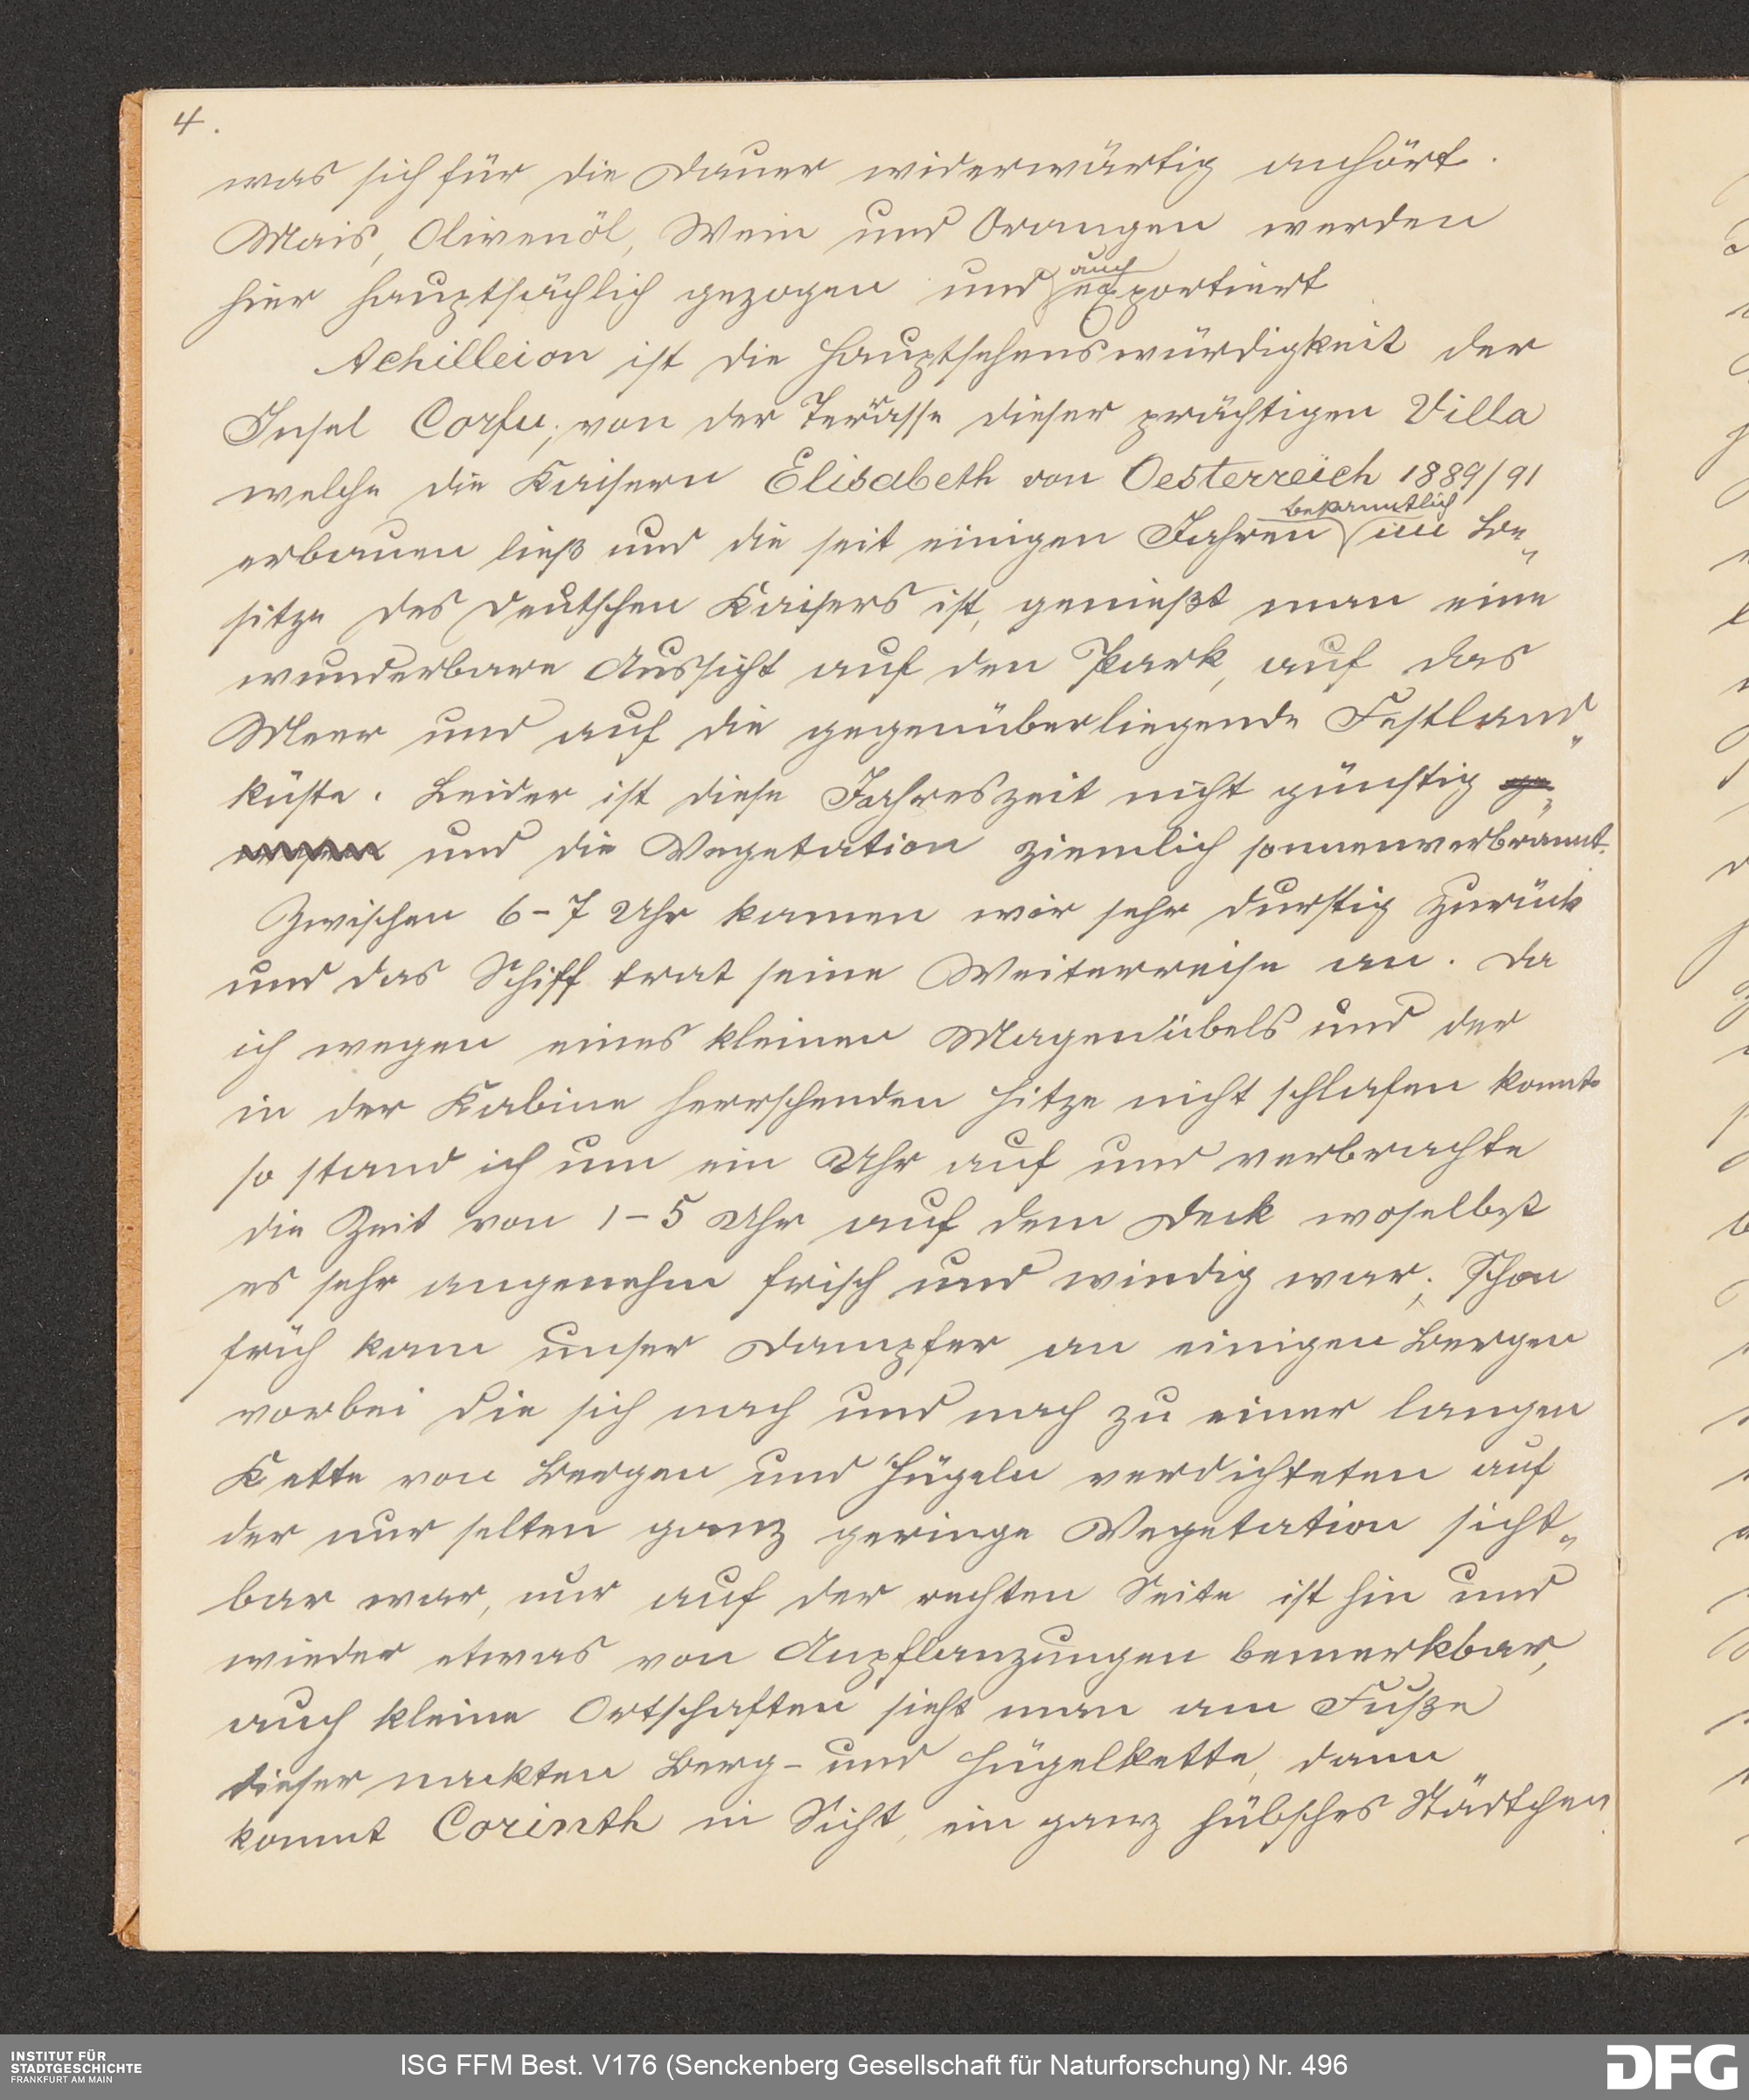 4.
was sich für die Dauer widerwärtig anhört.
Mais, Olivenöl, Wein und Orangen werden
auch
hier hauptsächlich gezogen und exportiert
Achilleion ist die Hauptsehenswürdigkeit der
Insel Corfu; von der Terrasse dieser prächtigen Villa
welche die Kaisern Elisabeth von Oesterreich 1889/91
bekanntlich
erbauen ließ und die seit einigen Jahren im Be„
sitze des deutschen Kaisers ist, genießt man eine
wunderbare Aussicht auf den Park, auf das
Meer und auf die gegenüberliegende Festland„
küste. Leider ist diese Jahreszeit nicht günstig ge„
und die Vegetation ziemlich sonnenverbrannt.
Zwischen 6-7 Uhr kamen wir sehr durstig zurück
und das Schiff trat seine Weiterreise an. Da
ich wegen eines kleinen Magenübels und der
in der Kabine herrschenden Hitze nicht schlafen konnte
so stand ich um ein Uhr auf und verbrachte
die Zeit von 1-5 Uhr auf dem Deck woselbst
es sehr angenehm frisch und windig war; Schon
früh kam unser Dampfer an einigen Bergen
vorbei die sich nach und nach zu einer langen
Kette von Bergen und Hügeln verdichteten auf
der nur selten ganz geringe Vegetation sicht„
bar war, nur auf der rechten Seite ist hin und
wieder etwas von Anpflanzungen bemerkbar,
auch kleine Ortschaften sieht man am Fuße
dieser nackten Berg- und Hügelkette, dann
kommt Corinth in Sicht, ein ganz hübsches Städtchen
INSTITUT FÜR
STADTGESCHICHTE
FRANKFURT AM MAIN
ISG FFM Best. V176 (Senckenberg Gesellschaft für Naturforschung) Nr. 496
DFG